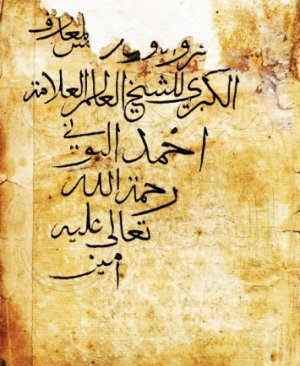 شمس المعارف
الكبرى للشيخ العالم العلامة
احمد البوني
رحمة الله
تعالى عليه
امين